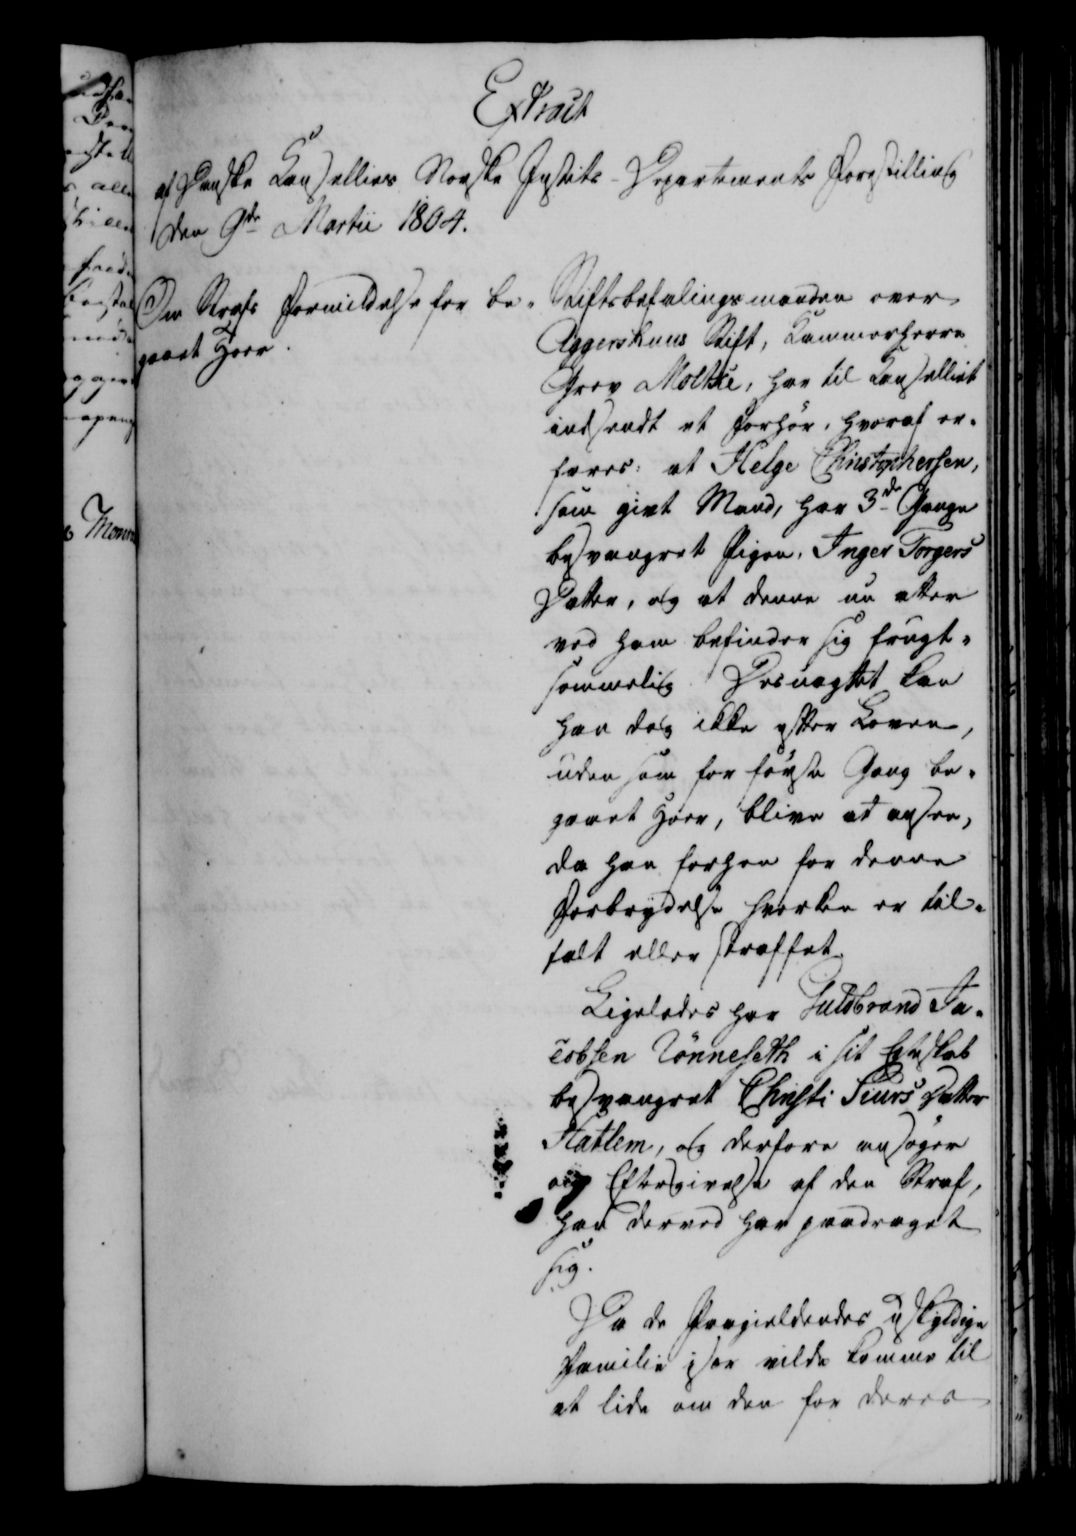 Extract
af Danske Cancelliets Norske Justits-Departements Forestilling
den 9de Martii 1804.
Om Strafs Formildelse for be-
gaaet Hoer.
Stiftsbefalingsmanden over
Aggershuus Stift, Kammerherre
Grev Moltke, har til Cancelliet
indsendt et Forhør, hvoraf er-
fares: at Helge Christophersen,
som givt Mand, har 3de Gange
besvangret Pigen, Inger Torgers
Datter, og at denne nu atter
ved ham befinder sig frugt-
sommelig. Desuagtet kan
han dog ikke efter Loven,
uden som for første Gang be-
gaaet Hoer, blive at ansee,
da han forhen for denne
Forbrydelse hverken er til-
talt eller straffet.
Ligeledes har Guldbrand Ja-
cobsen Rønneseth i sit Egteskab
besvangret Christi Siurs Datter
Hatlem, og derfore ansøger
om Eftergivelse af den Straf,
han derved har paadraget
sig.
Da de Paagieldendes uskyldige
Familie især vilde komme til
at lide om den for deres